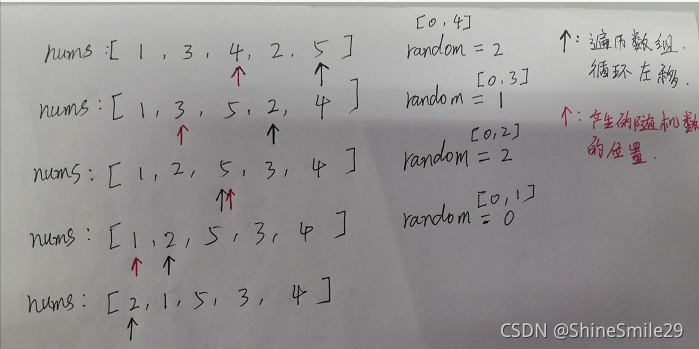 nums:[ 1, 3, 4, 2, 5 ]
[0,4]
random = 2
↑: 遍历数组.
循环左移.
nums:[ 1, 3, 5, 2, 4 ]
[0,3]
random = 1
↑: 产生的随机数
的位置.
nums:[ 1, 2, 5, 3, 4 ]
[0,2]
random = 2
nums:[ 1, 2, 5, 3, 4 ]
[0,1]
random = 0
nums:[ 2, 1, 5, 3, 4 ]
CSDN @ShineSmile29